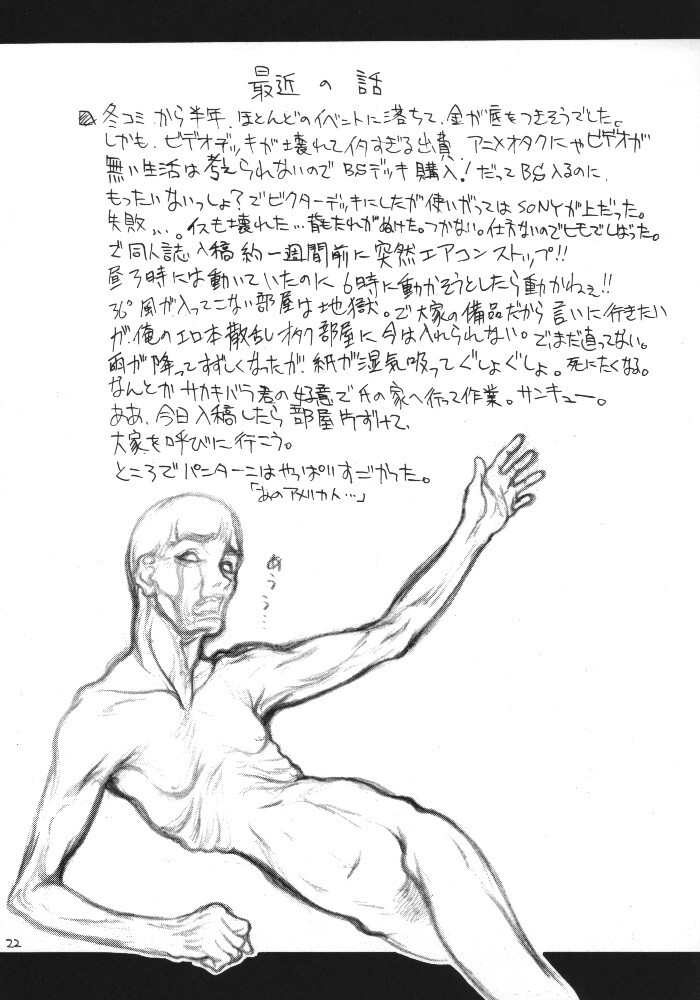 最近の話
冬コミから半年、ほとんどのイベントに落ちて、金が底をつきそうでした。
しかも、ビデオデッキが壊れてイタすぎる出費 アニメオタクにゃビデオが
無い生活は考えられないのでBSデッキ購入!だってBS入るのに、
もったいないっしょ?でビクターデッキにしたが使いがってはSONYが上だった。
失敗…。イスも壊れた…背もたれがぬけた。つかない。仕方ないのでヒモでしばった。
で同人誌入稿約一週間前に突然エアコンストップ!!
昼3時には動いていたのに6時に動かそうとしたら動かねぇ!!
36°風が入ってこない部屋は地獄。で大家の備品だから言いに行きたい
が、俺のエロ本散乱オタク部屋に今は入れられない。でまだ直ってない。
雨が降ってすずしくなったが、紙が湿気吸ってぐしょぐしょ。死にたくなる。
なんとかサカキバラ君の好意で氏の家へ行って作業。サンキュー。
ああ、今日入稿したら部屋片ずけて、
大家を呼びに行こう。
ところでパンターニはやっぱりすごかった。
「あのアメリカん…」
あうぅ…
22